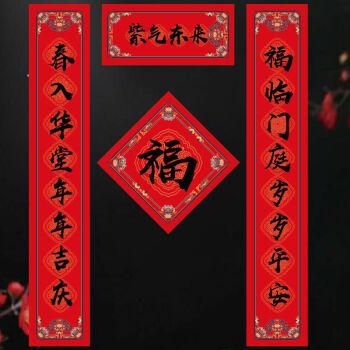 紫气东来
春入华堂年年吉庆
福
福临门庭岁岁平安